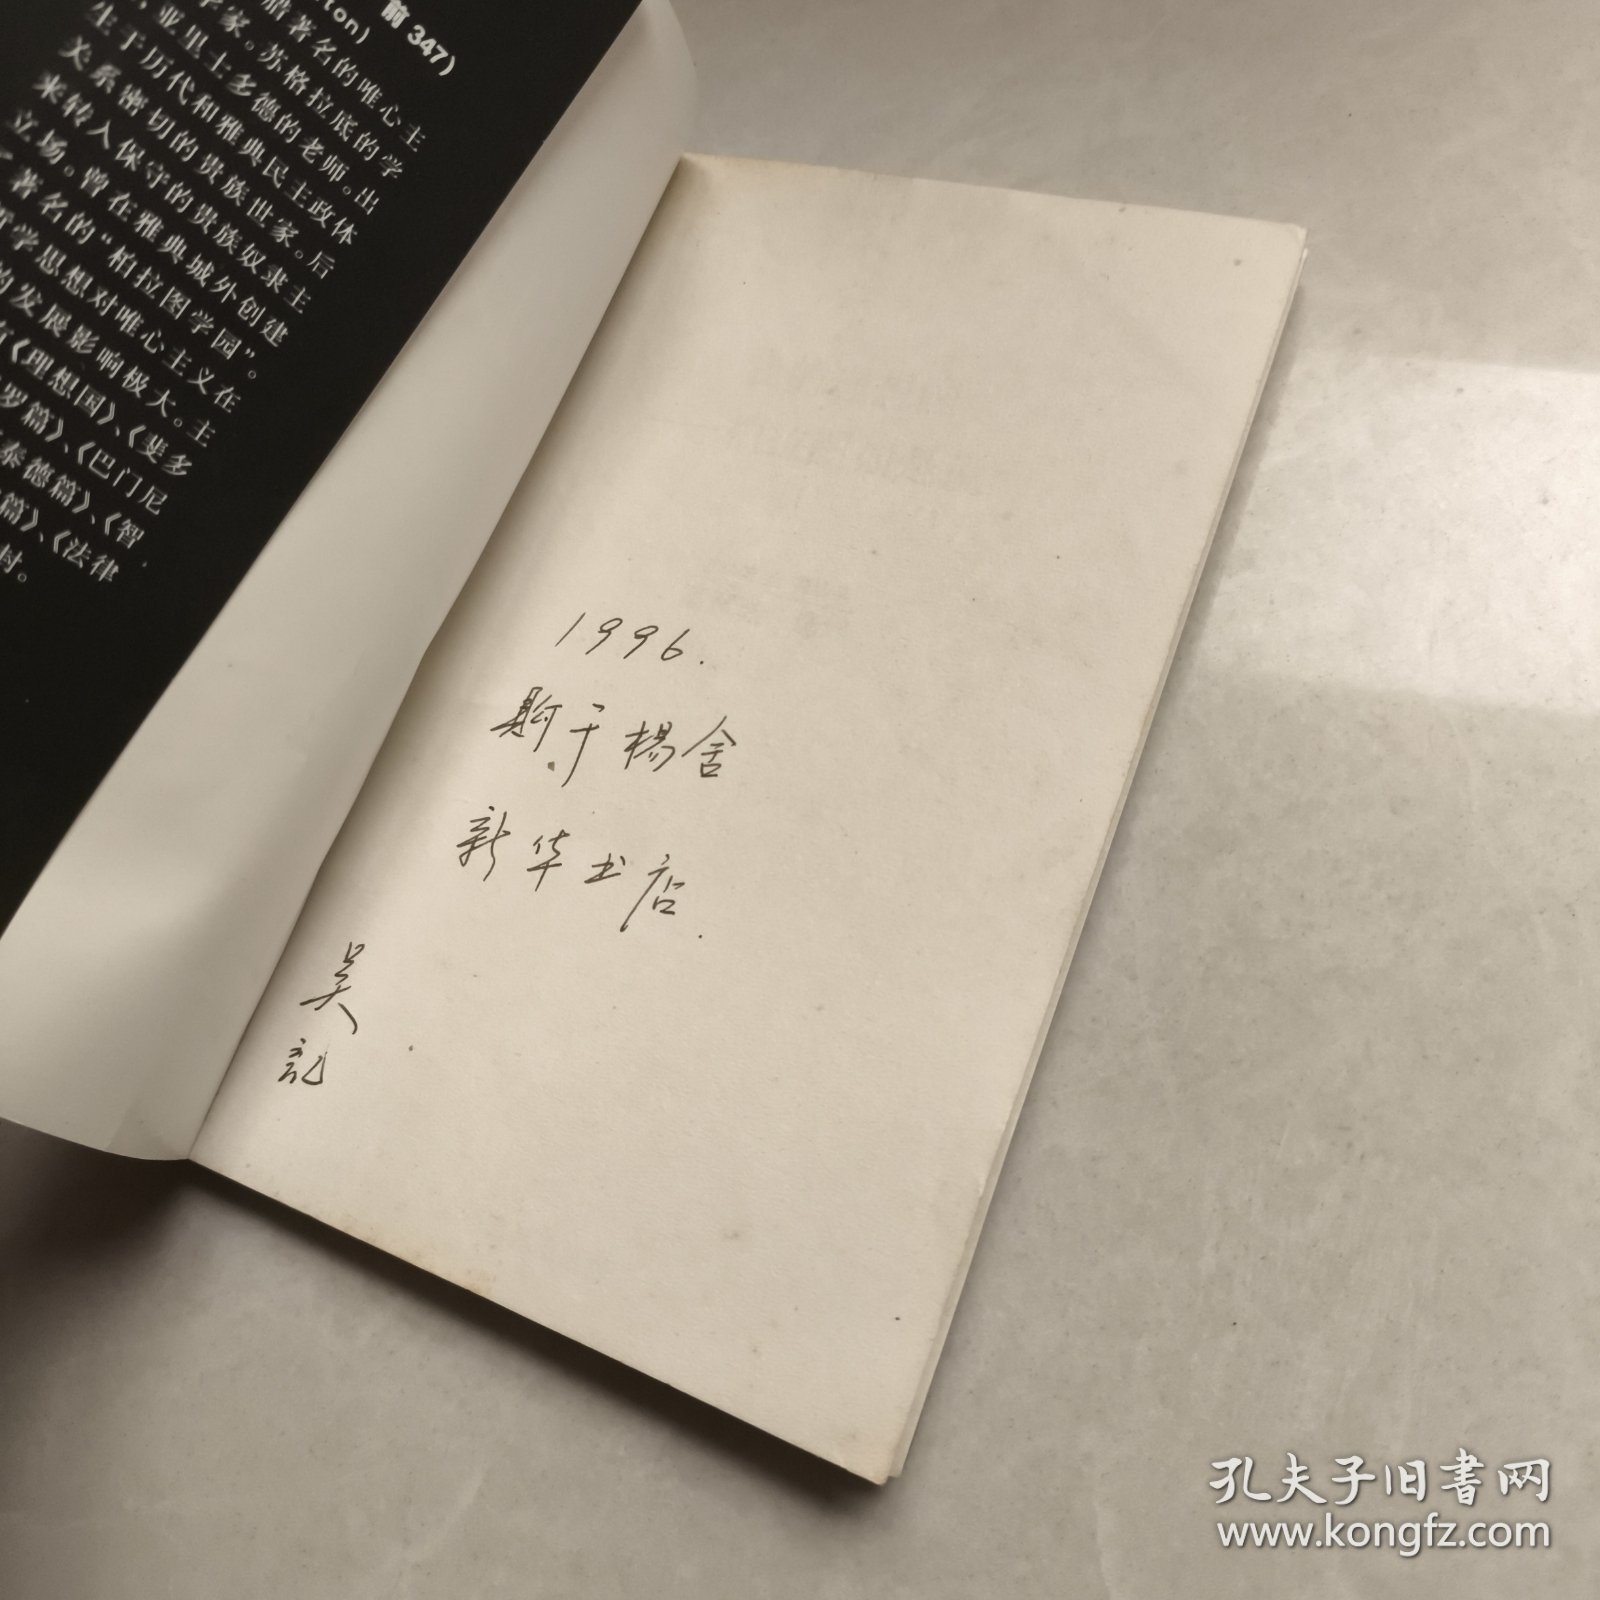 前347)
ton)
腊著名的唯心主
学家。苏格拉底的学
亚里士多德的老师。出
生于历代和雅典民主政体
关系密切的贵族世家。后
来转入保守的贵族奴隶主
立场。曾在雅典城外创建
著名的“柏拉图学园”。
学思想对唯心主义在
的发展影响极大。主
《理想国》、《斐多
罗篇》、《巴门尼
泰德篇》、《智
篇》、《法律
封。
1996.
购于楊舍
新华书店.
吴
記
孔夫子旧書网
www.kongfz.com